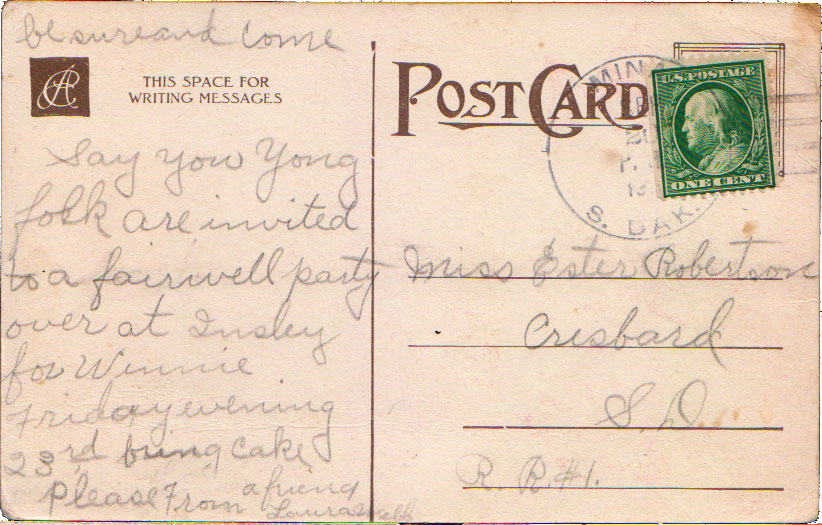 be sure and come
THIS SPACE FOR
WRITING MESSAGES
Say you Yong
folk are invited
to a fairwell party
over at Insley
for Winnie
Friday evening
23rd bring cake
Please From a friend
Laura
POST CARD
U.S. POSTAGE
ONE CENT
S. DAK.
Miss Ester Robertson
Cresbard
S.D.
R. R. #1.